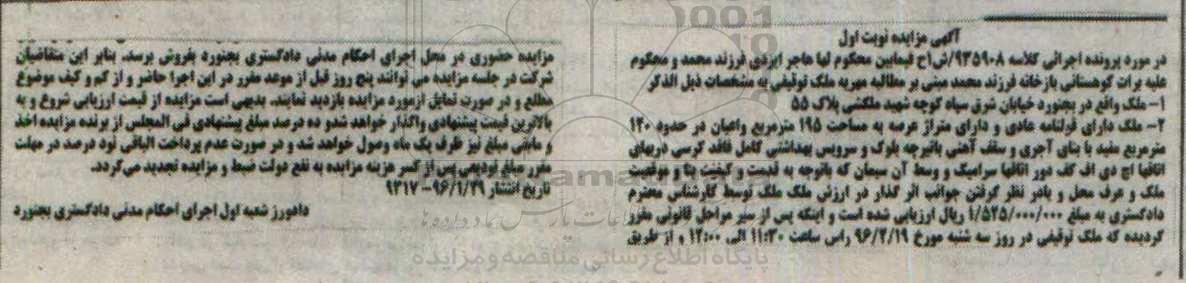 آگهی مزایده نوبت اول
در مورد پرونده اجرائی کلاسه ۹۳۵۹۰۸/ش۱ح فیمابین محکوم لها هاجر ایزدی فرزند محمد و محکوم
علیه برات کوهستانی بازخانه فرزند محمد مبنی بر مطالبه مهریه ملک توقیفی به مشخصات ذیل الذکر
۱- ملک واقع در بجنورد خیابان شرق سپاه کوچه شهید ملکشی پلاک ۵۵
۲- ملک دارای قولنامه عادی و دارای متراژ عرصه به مساحت ۱۹۵ مترمربع واعیان در حدود ۱۲۰
مترمربع مفید با بنای آجری و سقف آهنی باتیرچه بلوک و سرویس بهداشتی کامل فاقد کرسی دربهای
اتاقها اچ دی اف کف دور اتاقها سرامیک و وسط آن سیمان که باتوجه به قدمت و کیفیت بنا و موقعیت
ملک و عرف محل و بادر نظر گرفتن جوانب اثر گذار در ارزش ملک ملک توسط کارشناس محترم
دادگستری به مبلغ ۱/۵۲۵/۰۰۰/۰۰۰ ریال ارزیابی شده است و اینکه پس از سیر مراحل قانونی مقرر
گردیده که ملک توقیفی در روز سه شنبه مورخ ۹۶/۲/۱۹ راس ساعت ۱۱:۳۰ الی ۱۲:۰۰ و از طریق
مزایده حضوری در محل اجرای احکام مدنی دادگستری بجنورد بفروش برسد. بنابر این متقاضیان
شرکت در جلسه مزایده می توانند پنج روز قبل از موعد مقرر در این اجرا حاضر و از کم و کیف موضوع
مطلع و در صورت تمایل ازمورد مزایده بازدید نمایند. بدیهی است مزایده از قیمت ارزیابی شروع و به
بالاترین قیمت پیشنهادی واگذار خواهد شدو ده درصد مبلغ پیشنهادی فی المجلس از برنده مزایده اخذ
و مابقی مبلغ نیز ظرف یک ماه وصول خواهد شد و در صورت عدم پرداخت الباقی نود درصد در مهلت
مقرر مبلغ تودیعی پس از کسر هزینه مزایده به نفع دولت ضبط و مزایده تجدید می گردد.
تاریخ انتشار ۹۶/۱/۲۹-۹۳۱۷
دادورز شعبه اول اجرای احکام مدنی دادگستری بجنورد
پایگاه اطلاع رسانی مناقصه و مزایده